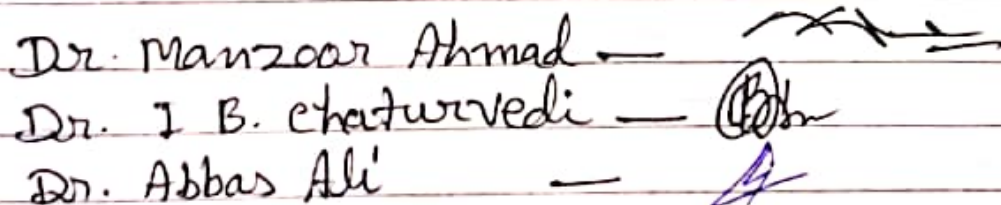 Dr. Manzoor Ahmad —
Dr. I B. Chaturvedi —
Dr. Abbas Ali —